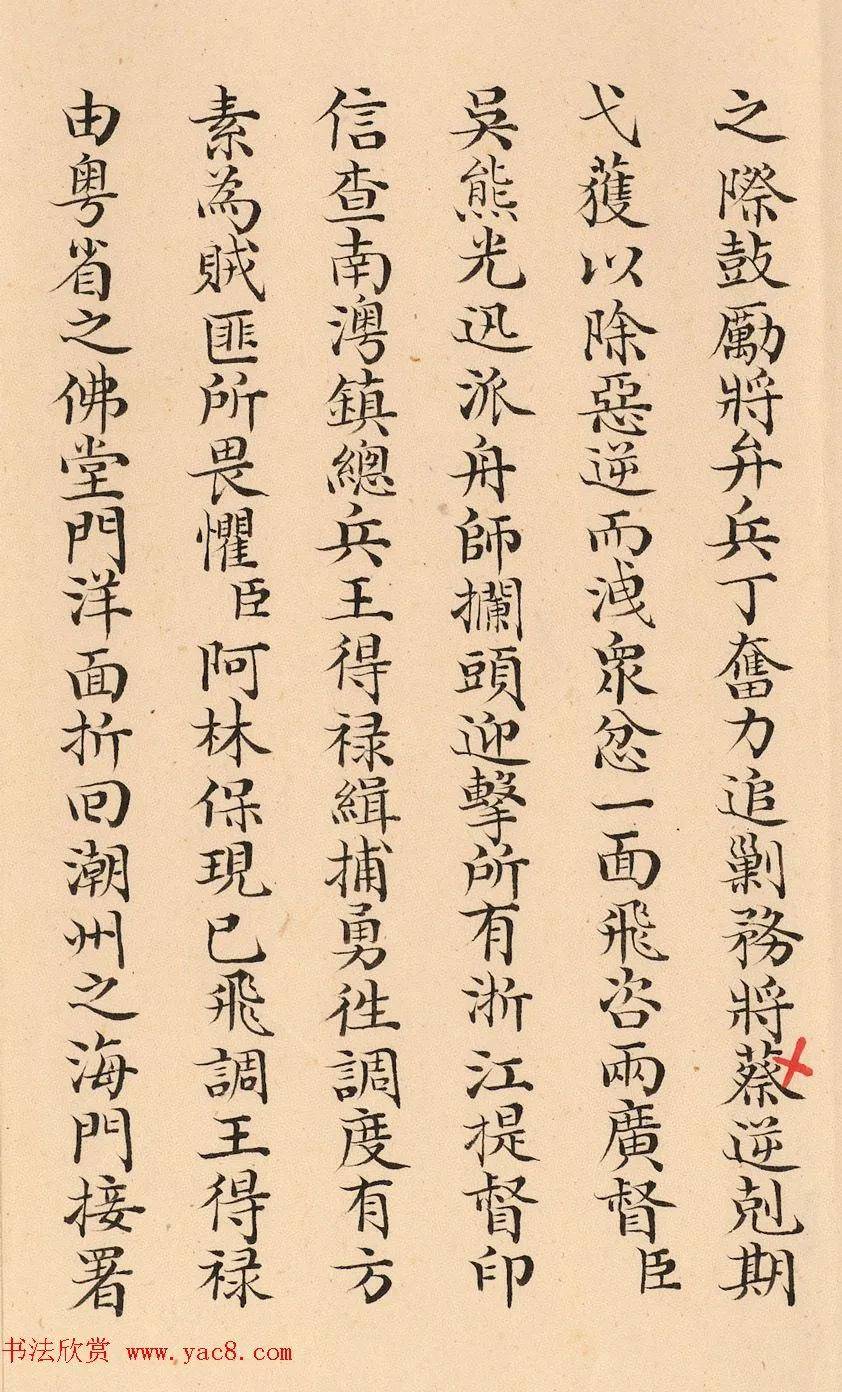 之際鼓勵將弁兵丁奮力追剿務將蔡逆剋期
弋獲以除惡逆而洩眾忿一面飛咨兩廣督臣
吳熊光迅派舟師攔頭迎擊所有浙江提督印
信查南澳鎮總兵王得禄緝捕勇往調度有方
素為賊匪所畏懼臣阿林保現已飛調王得禄
由粤省之佛堂門洋面折回潮州之海門接署
书法欣赏 www.yac8.com